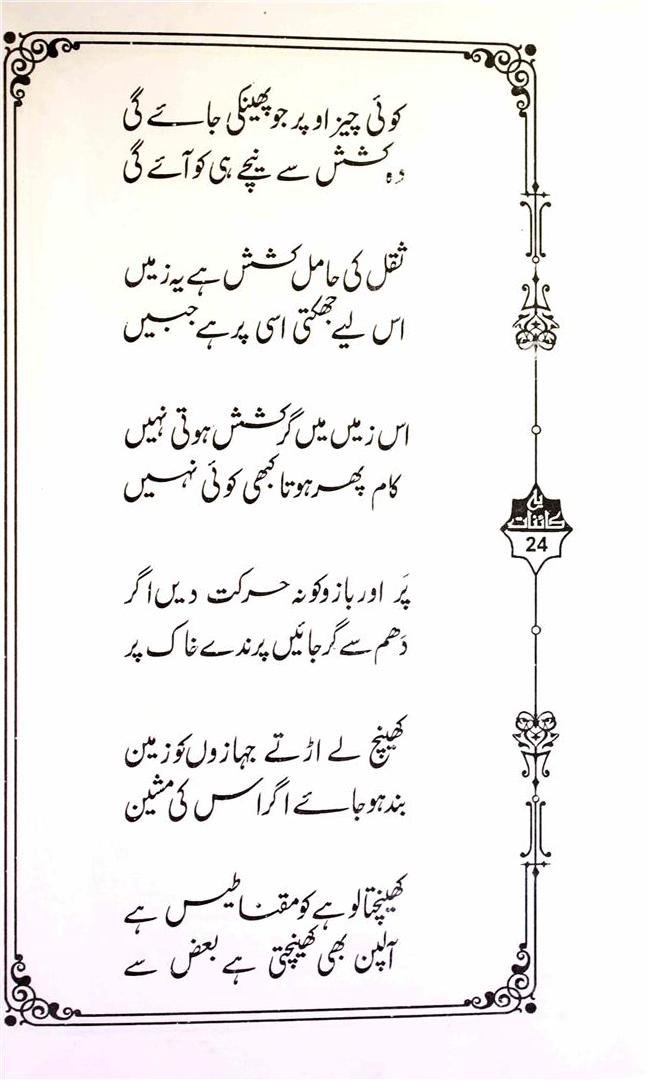 کوئی چیز اوپر جو پھینکی جائے گی
وہ کشش سے نیچے ہی کو آئے گی
ثقل کی حامل کشش ہے یہ زمیں
اس لیے جھکتی اسی پر ہے جبیں
اس زمیں میں گر کشش ہوتی نہیں
کام پھر ہوتا کبھی کوئی نہیں
پَر اور بازو کو نہ حرکت دیں اگر
دَھم سے گر جائیں پرندے خاک پر
کھینچ لے اڑتے جہازوں کو زمین
بند ہو جائے اگر اس کی مشین
کھینچتا لوہے کو مقناطیس ہے
آلپن بھی کھینچتی ہے بعض سے
کائنات
24